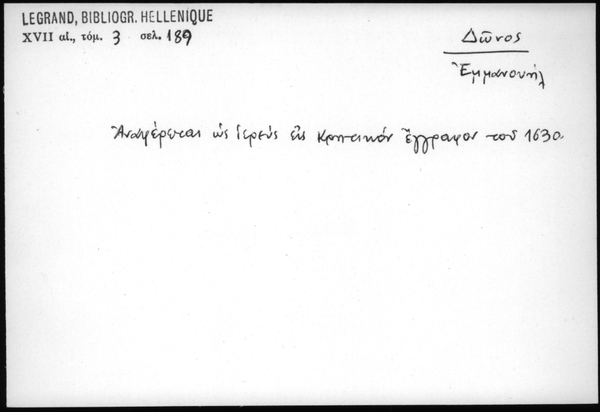 LEGRAND, BIBLIOGR. HELLENIQUE
XVII αἰ., τόμ. 3 σελ. 189
Δῶνος
Ἐμμανουήλ
Ἀναφέρεται ὡς ἱερεὺς εἰς κρητικὸν ἔγγραφον τοῦ 1630.